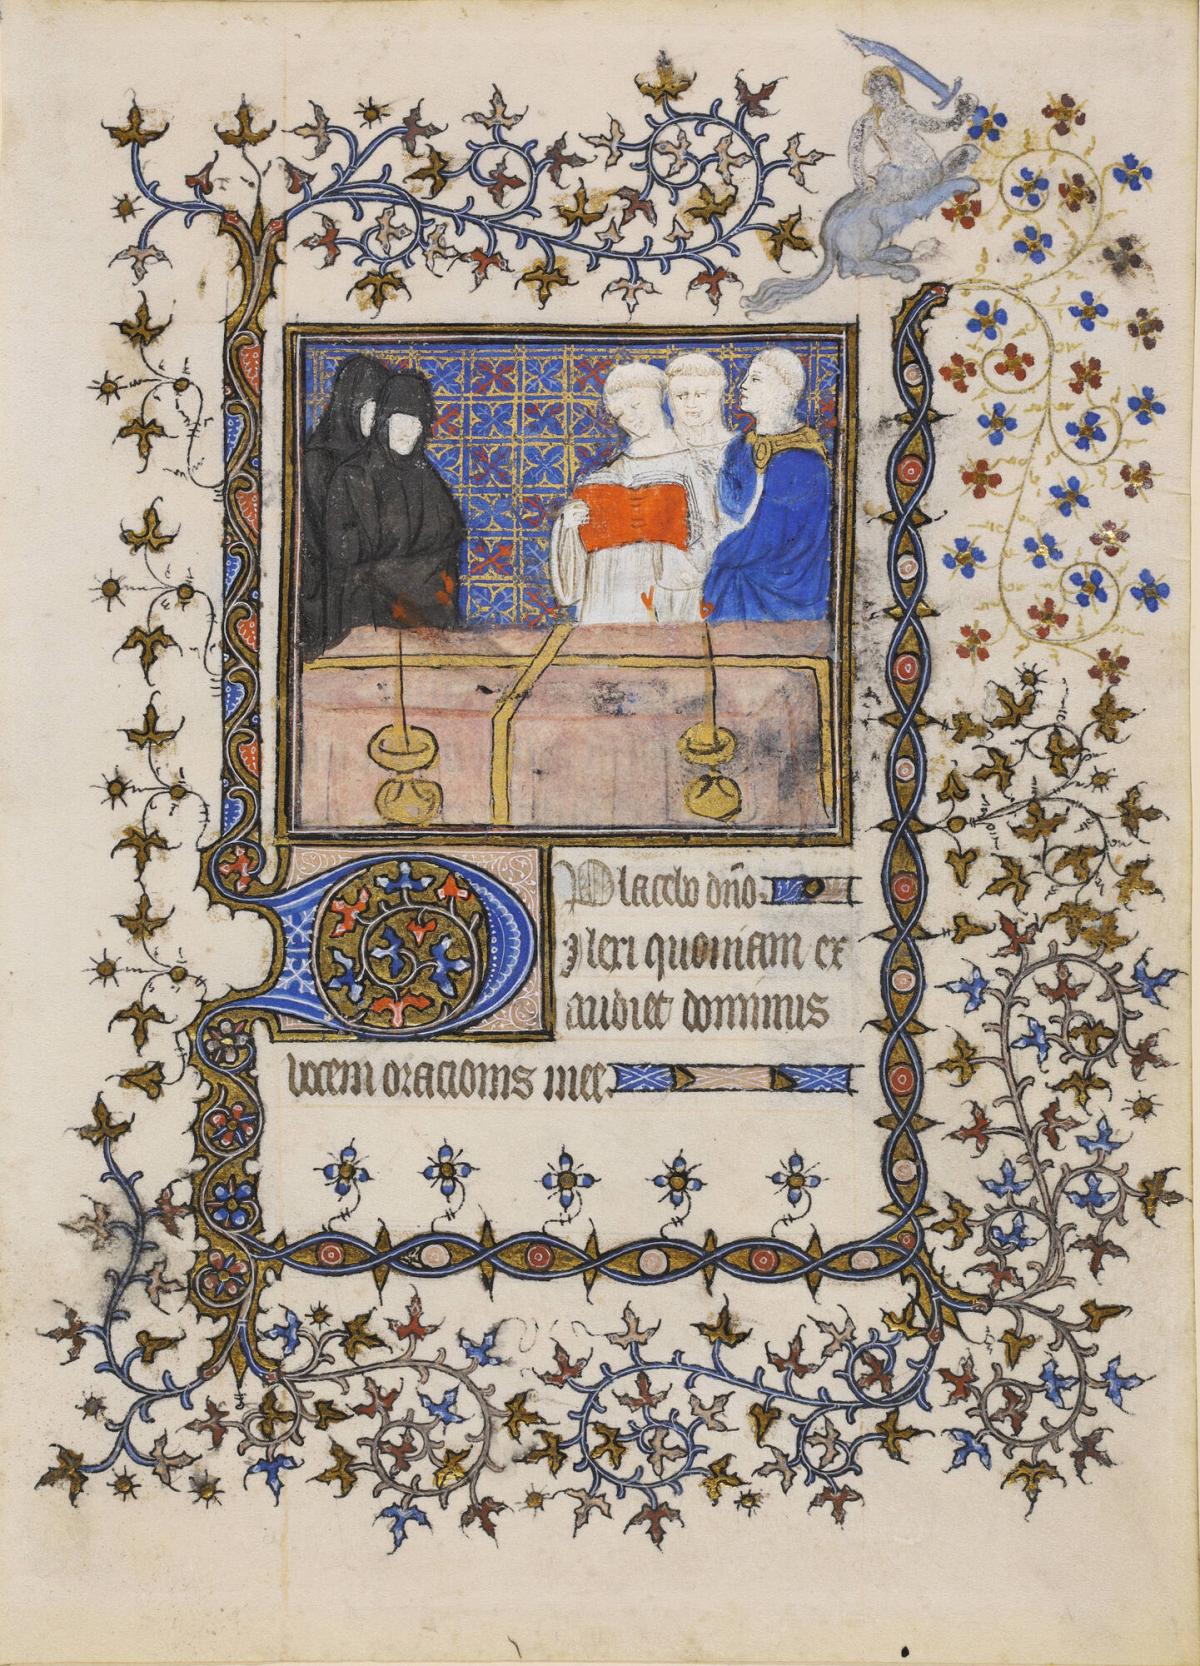 Placebo dño.
Dilexi quoniam ex
audiet dominus
vocem oracionis mee.